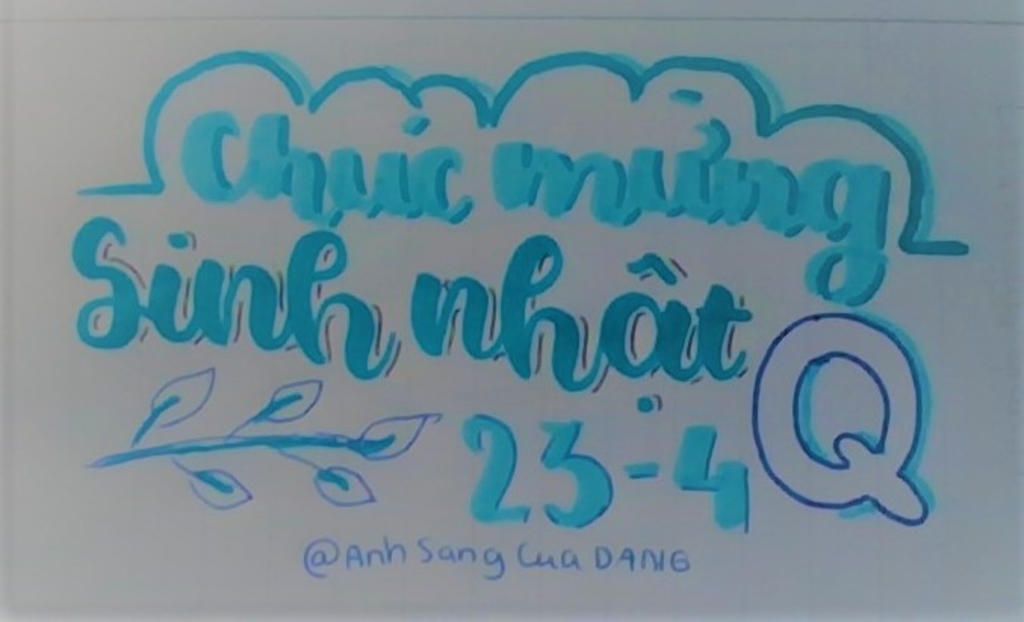 Chúc mừng
Sinh nhật
23-4 Q
@Anh Sang Cua DANG